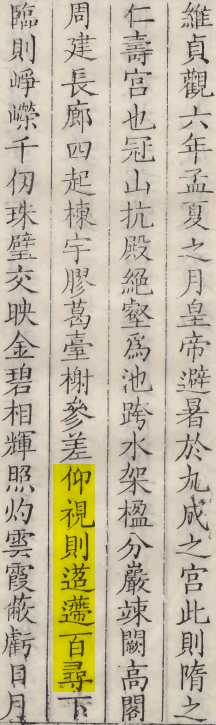 維貞觀六年孟夏之月皇帝避暑於九成之宮此則隋之
仁壽宮也冠山抗殿絕壑爲池跨水架楹分巖竦闕高閣
周建長廊四起棟宇膠葛臺榭參差仰視則迢遰百尋下
臨則崢嶸千仞珠璧交映金碧相輝照灼雲霞蔽虧日月